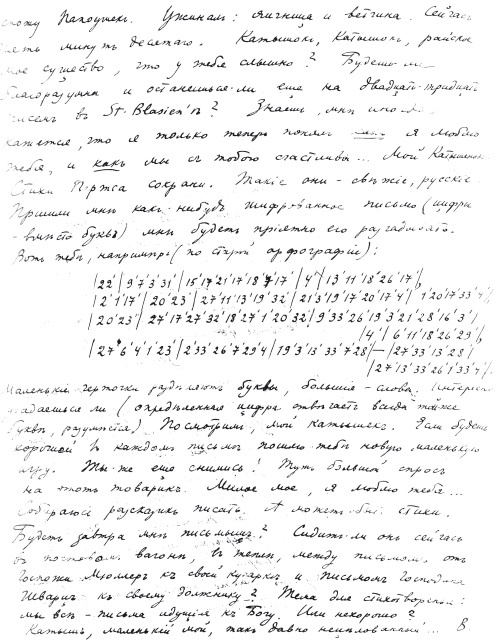 Папоушек. Ужиналъ: яичница и ветчина. Сейчасъ
минутъ десятаго. Катышокъ, Катышокъ, райское
мое существо, что у тебя слышно? Будешь ли
благоразумна и останешься-ли еще на двадцать-тридцать
въ St. Blasien'ѣ? Знаешь, мнѣ
кажется, что я только теперь понялъ я люблю
тебя, и какъ мы съ тобою счастливы... Мой Катышонокъ
Стихи сохрани. Такіе они - свѣжіе, русскіе.
Пришли мнѣ какъ-нибудь шифрованное письмо (цифры
вмѣсто буквъ) мнѣ будетъ пріятно его разгадывать.
Вотъ тебѣ, напримѣръ (по старой орфографіи):
|22'|9'7'3'31'|15'17'21'17'18'7'17'|4'|13'11'18'26'17'|
|2'1'17'|20'23'|27'11'13'19'32'|21'3'19'17'20'17'4'|1'20'17'33'4'|
|20'23'|27'17'27'32'18'27'1'20'32'|9'33'26'19'3'21'28'16'3'|
|4'|6'11'18'26'29'|
|27'6'4'1'23'|2'33'26'7'29'4|19'3'13'33'7'28'|—|27'33'13'28'|
|27'13'33'26'1'33'4'|
Маленькія черточки раздѣляютъ буквы, большія - слова. Интересно
угадаешься ли (опредѣленная цифра отвѣчаетъ всегда той же
буквѣ, разумѣется) Посмотримъ, мой катышекъ. Если будешь
хорошей въ каждомъ письмѣ пошлю тебѣ новую маленькую
игру. Ты же еще снимись! Тутъ большой спросъ
на этотъ товарикъ. Милое мое, я люблю тебя...
Собираюсь разсказикъ писать. А можетъ быть стихи.
Будетъ завтра мнѣ письмышъ? Сидитъ ли онъ сейчасъ
въ почтовомъ вагонѣ, въ теплѣ, между письмомъ отъ
Госпожи Мюллеръ къ своей кухаркѣ и письмомъ Господина
Шварцъ къ своему должнику? Тема для стихотворенія:
мы всѣ - письма идущія къ Богу. Или нехорошо?
Катышъ, маленькій мой, такъ давно нецѣлованный... В